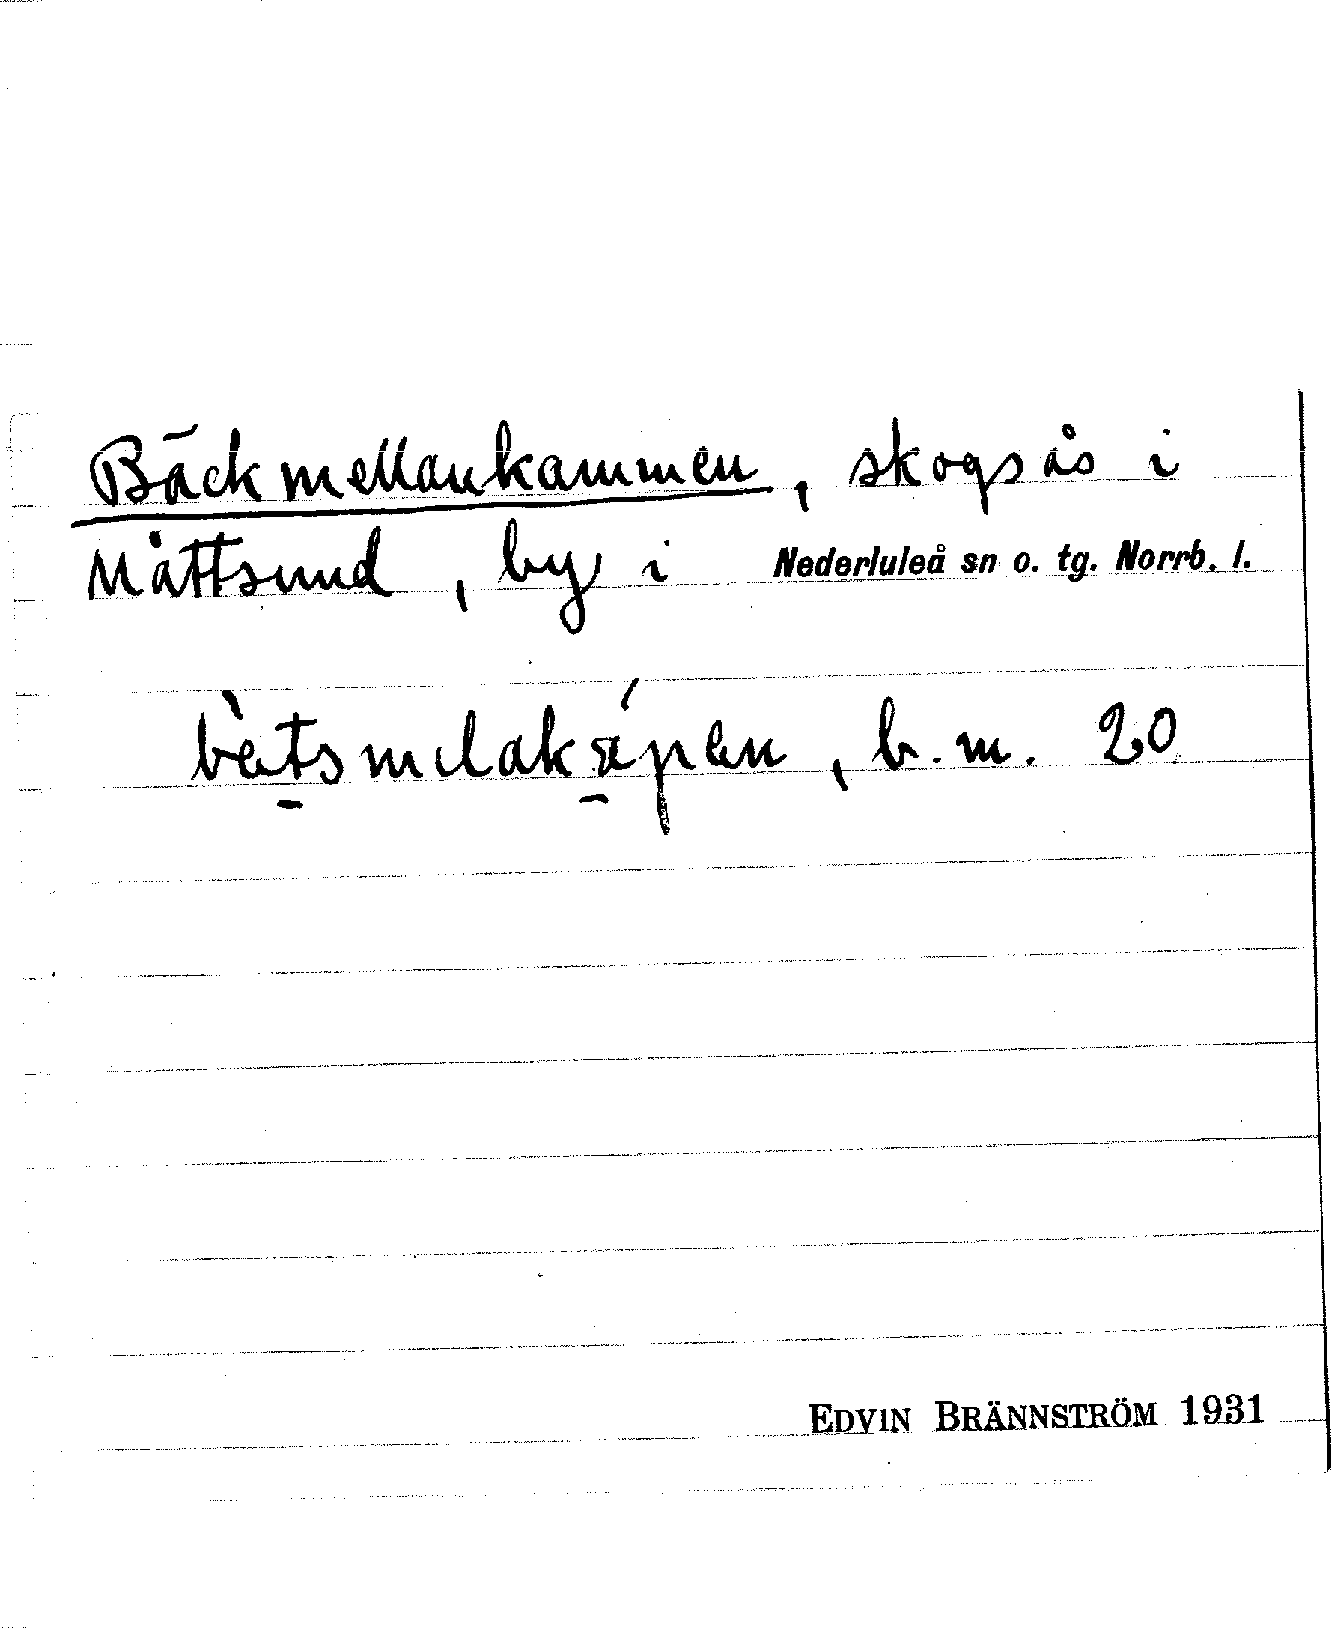 Bäckmellankammen, skogsås i
Måttsund, by i Nederluleå sn o. tg. Norrb. l.
b. m. 20
EDVIN BRÄNNSTRÖM 1931